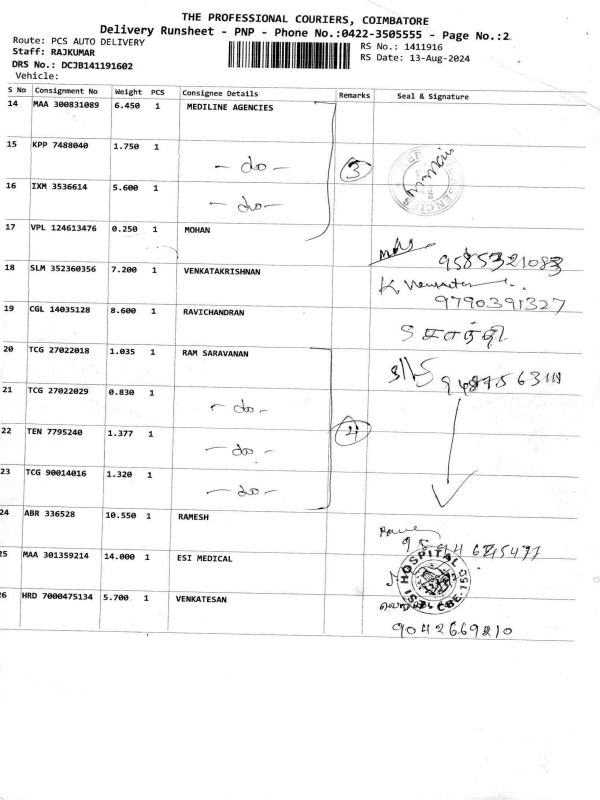 THE PROFESSIONAL COURIERS, COIMBATORE
Delivery Runsheet - PNP - Phone No.:0422-3505555 - Page No.:2
Route: PCS AUTO DELIVERY
RS No.: 1411916
Staff: RAJKUMAR
RS Date: 13-Aug-2024
DRS No.: DCJB141191602
Vehicle:
S No Consignment No Weight PCS Consignee Details Remarks Seal & Signature
14 MAA 300831089 6.450 1 MEDILINE AGENCIES
15 KPP 7488040 1.750 1 - do - 3
16 IXM 3536614 5.600 1 - do -
17 VPL 124613476 0.250 1 MOHAN
9585321083
18 SLM 352360356 7.200 1 VENKATAKRISHNAN
9790391327
19 CGL 14035128 8.600 1 RAVICHANDRAN
20 TCG 27022018 1.035 1 RAM SARAVANAN
21 TCG 27022029 0.830 1 - do -
22 TEN 7795240 1.377 1 - do - 4
23 TCG 90014016 1.320 1 - do -
24 ABR 336528 10.550 1 RAMESH
25 MAA 301359214 14.000 1 ESI MEDICAL
HOSPITAL
26 HRD 7000475134 5.700 1 VENKATESAN
9042669210